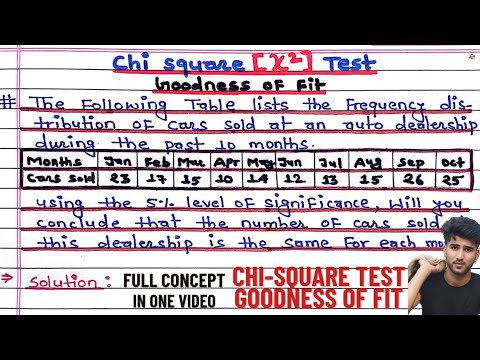 Chi square [χ²] Test
Goodness of Fit
# The Following Table lists the Frequency dis-
tribution of cars sold at an auto dealership
during the past 10 months.
Months Jan Feb Mar Apr May Jun Jul Aug Sep Oct
Cars sold 23 17 15 10 14 12 13 15 26 25
using the 5% level of significance, will you
conclude that the number of cars sold
this dealership is the same for each
⇒ Solution: FULL CONCEPT CHI-SQUARE TEST
IN ONE VIDEO GOODNESS OF FIT